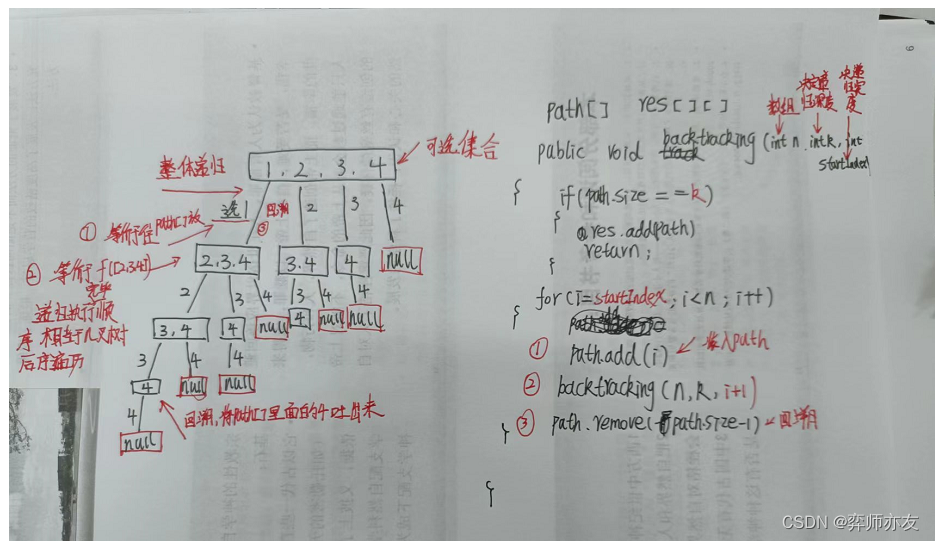 整体递归
1.2.3.4
可选集合
① 等价于往path[]放
选1
回溯
③
2
3
4
② 等价于f([2,3,4])
2.3.4
3.4
4
null
递归执行顺
序相当于几叉树
后序遍历
2
3
4
3
4
4
3,4
4
null
4
null
null
3
4
4
4
null
null
4
回溯,将path[]里面的4吐出来
null
path[] res[][]
数组
决定递归深度
决定递归宽度
public void backtracking (int n, int k, int
startIndex)
{
if(path.size == k)
{
res.add(path)
return;
}
for(i=startIndex; i<n; i++)
{
① path.add(i) 放入path
② backtracking(n,k,i+1)
③ path.remove(path.size-1) 回溯
}
}
CSDN @弈师亦友